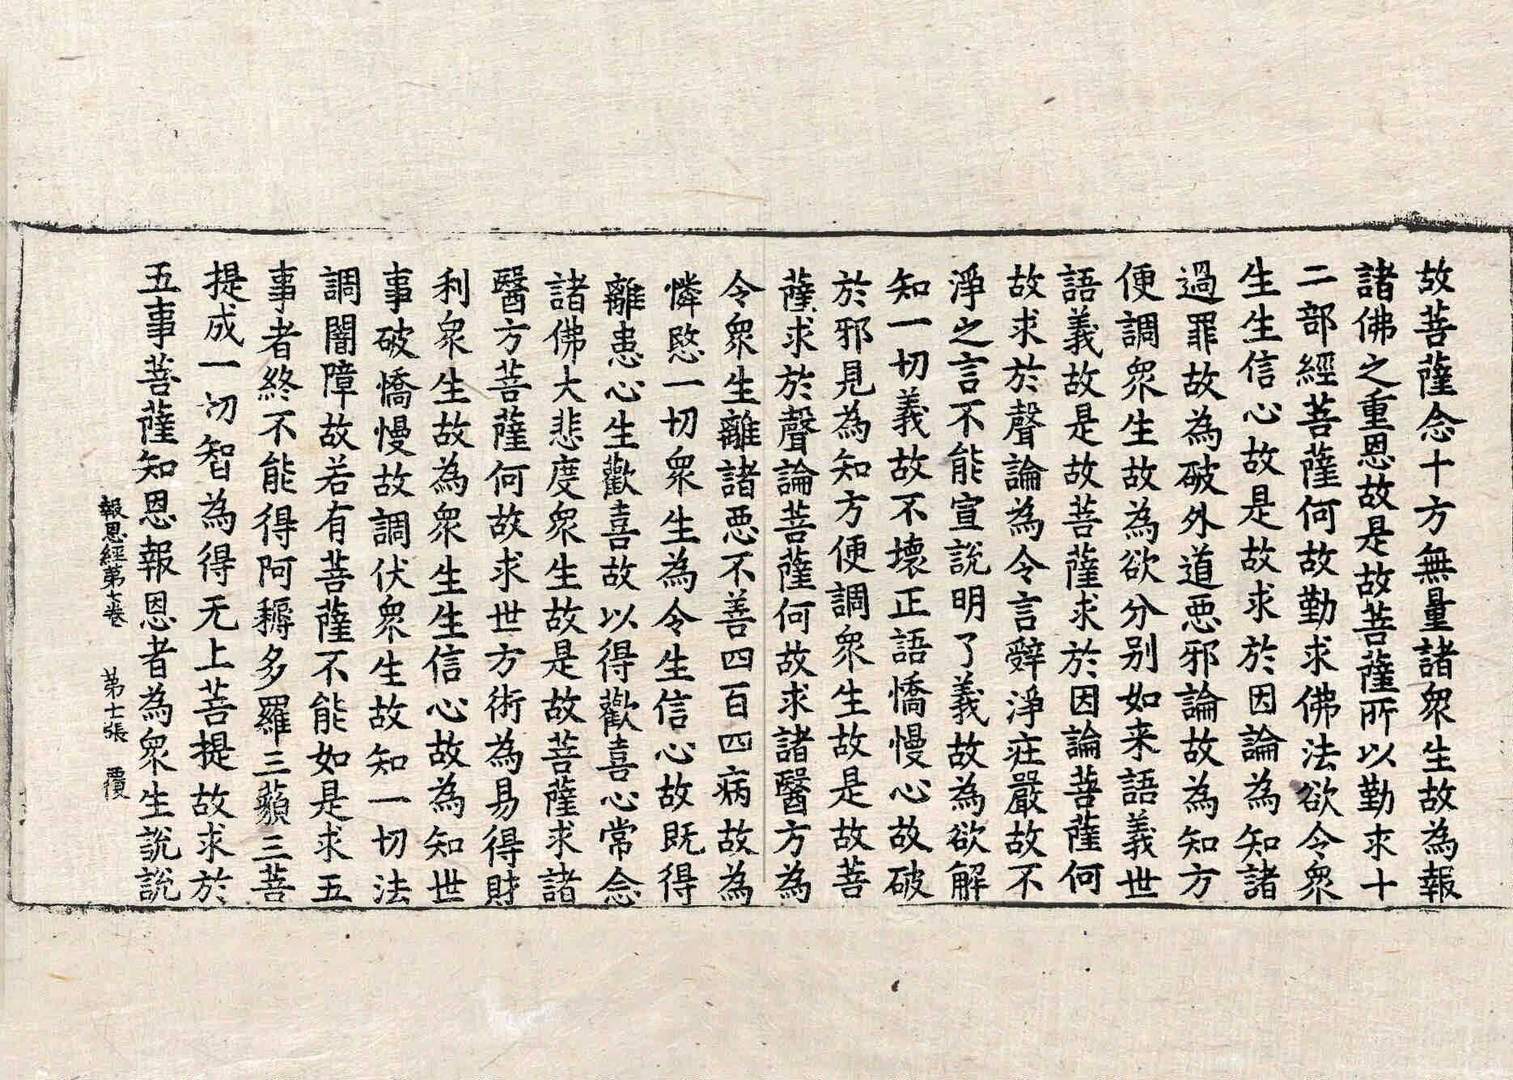 故菩薩念十方無量諸眾生故為報
諸佛之重恩故是故菩薩所以勤求十
二部經菩薩何故勤求佛法欲令眾
生生信心故是故求於因論為知諸
過罪故為破外道惡邪論故為知方
便調眾生故為欲分别如来語義世
語義故是故菩薩求於因論菩薩何
故求於聲論為令言辭淨庄嚴故不
淨之言不能宣說明了義故為欲解
知一切義故不壞正語憍慢心故破
於邪見為知方便調眾生故是故菩
薩求於聲論菩薩何故求諸醫方為
令眾生離諸惡不善四百四病故為
憐愍一切眾生為令生信心故既得
離恚心生歡喜故以得歡喜心常念
諸佛大悲度眾生故是故菩薩求諸
醫方菩薩何故求世方術為易得財
利眾生故為眾生生信心故為知世
事破憍慢故調伏眾生故知一切法
調闇障故若有菩薩不能如是求五
事者終不能得阿耨多羅三藐三菩
提成一切智為得无上菩提故求於
五事菩薩知恩報恩者為眾生說說
報恩經第七卷 第十張 覆